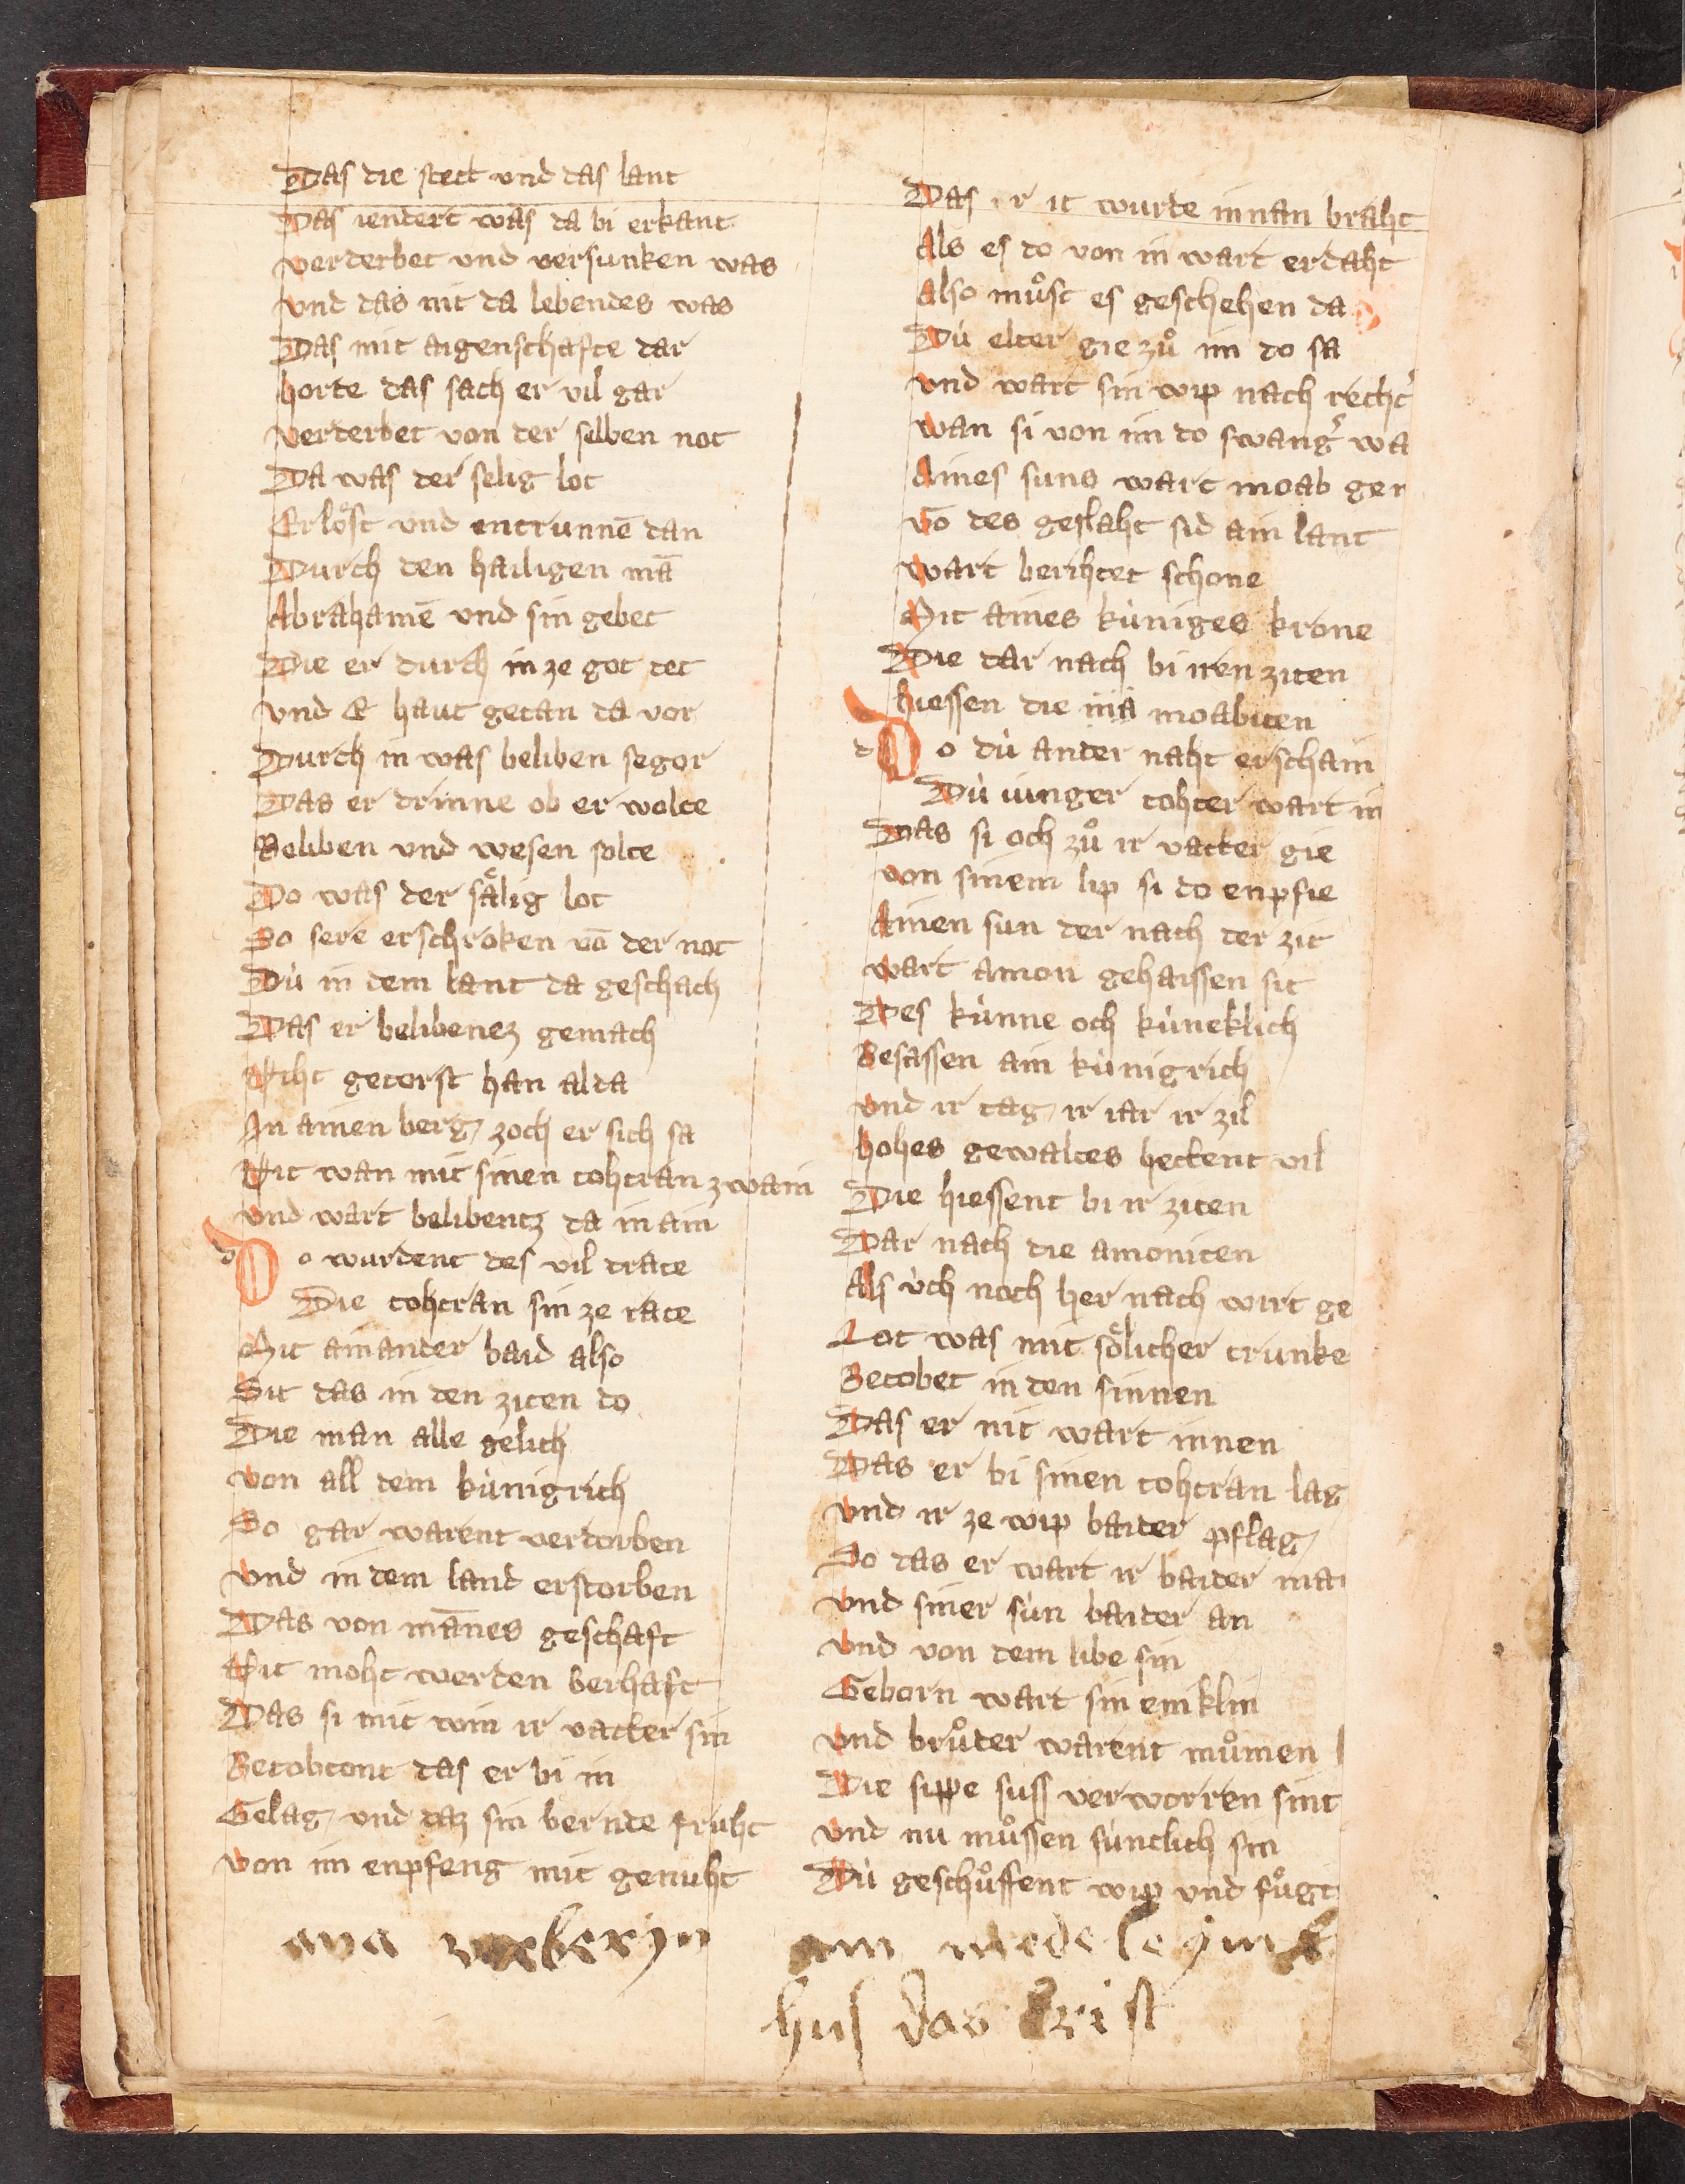 Das die stett vnd das lant
Das iendert was da bi erkant
verderbet vnd versunken was
vnd das nit da lebendes was
Das mit aigenschafte dar
horte das sach er vil gar
verderbet von der selben not
Da was der selig lot
Erlöst vnd entrunnē dan
Durch den hailigen mā
Abrahamē vnd sin gebet
Die er durch in ze got tet
vnd E haut getan da vor
Durch in was beliben segor
Das er drinne ob er wolte
Beliben vnd wesen solte
Do was der sälig lot
So sere erschroken vō der not
Dü in dem lant da geschach
Das er belibenez gemach
Niht getorst han alda
In ainen berg zoch er sich sa
Nit wan mit sinen tohtran zwain
vnd wart belibentz da in ain
Do wurdent des vil trate
Die tohtran sin ze rate
Mit ainander baid also
Sit das in den ziten do
Die man alle gelich
von all dem künigrich
So gar warent verdorben
vnd in dem land erstorben
Das von mānes geschaft
Nit moht werden berhaft
Das si mit win ir vatter sin
Betobtont das er bi in
Gelag vnd daz sin bernde fruht
von im enpfeng mit genuht
Das ir it wurde innan braht
Als es do von in wart erdaht
Also muͦst es geschehen da
Dü elter gie zuͦ im do sa
vnd wart sin wip nach recht
wan si von im do swang' wa
Aines suns wart moab ger
Vō des geslaht sid ain lant
wart berihtet schone
Mit aines küniges krone
Die dar nach bi iren ziten
hiessen die moabiten
Do dü ander naht erschain
Dü iunger tohter wart in
Das si och zuͦ ir vatter gie
von sinem lip si do enpfie
Ainen sun der nach der zit
wart amon gehaissen sit
Des künne och küneklich
Besassen ain künigrich
vnd ir tag ir iar ir zil
hohes gewaltes hettent vil
Die hiessent bi ir ziten
Dar nach die amoniten
Als üch noch her nach wirt ge
Lot was mit sölicher trunke
Betobet in den sinnen
Das er nit wart innen
Das er bi sinen tohtran lag
vnd ir ze wip baider pflag
So das er wart ir baider ma
vnd siner sün baider an
vnd von dem libe sin
Geborn wart sin eniklin
vnd bruͦder warent muͦmen
Die sippe suss verworren sint
vnd nu muͦssen süntlich sin
Dü geschuͦffent wip vnd fuͦgt
ana
hus das Crist